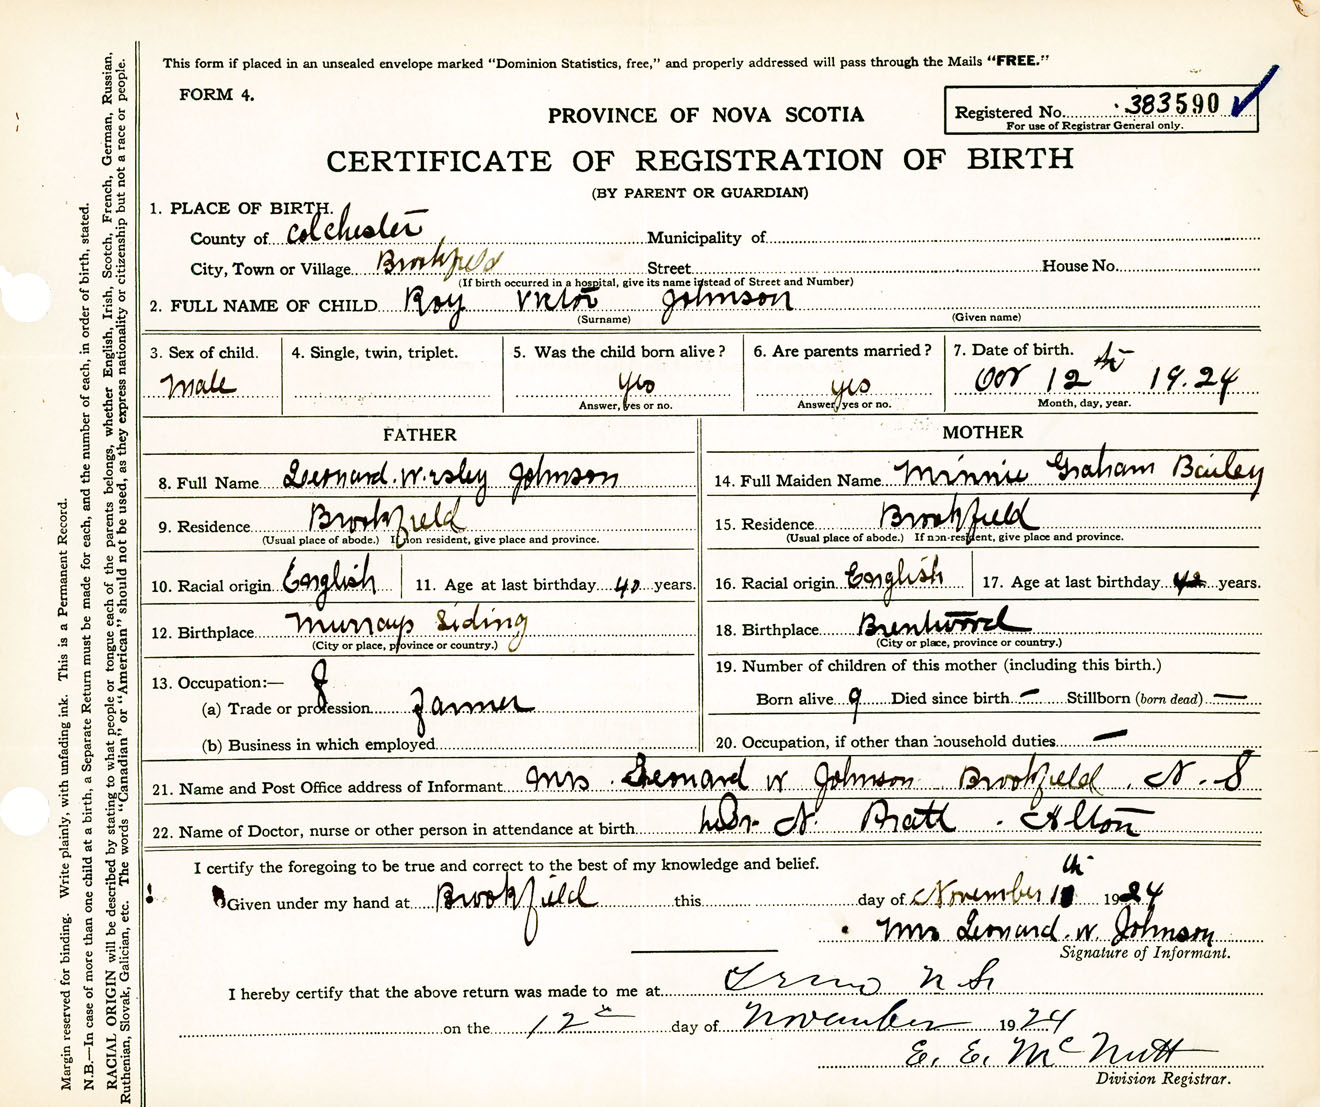 This form if placed in an unsealed envelope marked "Dominion Statistics, free," and properly addressed will pass through the Mails "FREE."
FORM 4.
PROVINCE OF NOVA SCOTIA
Registered No. 383590
For use of Registrar General only.
CERTIFICATE OF REGISTRATION OF BIRTH
(BY PARENT OR GUARDIAN)
1. PLACE OF BIRTH.
County of Colchester Municipality of
City, Town or Village Brookfield Street House No.
(If birth occurred in a hospital, give its name instead of Street and Number)
2. FULL NAME OF CHILD Roy Victor Johnson
(Surname) (Given name)
3. Sex of child. 4. Single, twin, triplet. 5. Was the child born alive? 6. Are parents married? 7. Date of birth.
Male yes yes 12th 19.24
Answer, yes or no. Answer, yes or no. Month, day, year.
FATHER MOTHER
8. Full Name Leonard. Wesley Johnson 14. Full Maiden Name Minnie Graham Bailey
9. Residence Brookfield 15. Residence Brookfield
(Usual place of abode.) If non resident, give place and province. (Usual place of abode.) If non-resident, give place and province.
10. Racial origin English 11. Age at last birthday 42 years. 16. Racial origin English 17. Age at last birthday years.
12. Birthplace Murrays Siding 18. Birthplace Brentwood
(City or place, province or country.) (City or place, province or country.)
13. Occupation:— 19. Number of children of this mother (including this birth.)
(a) Trade or profession Farmer Born alive 9 Died since birth – Stillborn (born dead) —
(b) Business in which employed 20. Occupation, if other than household duties —
21. Name and Post Office address of Informant Mrs. Leonard W Johnson Brookfield. N.S
22. Name of Doctor, nurse or other person in attendance at birth Dr. N. Pratt. Alton
I certify the foregoing to be true and correct to the best of my knowledge and belief.
Given under my hand at Brookfield this day of November th 1924
Mrs Leonard. W. Johnson
Signature of Informant.
I hereby certify that the above return was made to me at Truro N.S.
on the 12th day of November 1924
E. E. McNutt
Division Registrar.
Margin reserved for binding. Write plainly, with unfading ink. This is a Permanent Record.
N.B.—In case of more than one child at a birth, a Separate Return must be made for each, and the number of each, in order of birth, stated.
RACIAL ORIGIN will be described by stating to what people or tongue each of the parents belongs, whether English, Irish, Scotch, French, German, Russian,
Ruthenian, Slovak, Galician, etc. The words "Canadian" or "American" should not be used, as they express nationality or citizenship but not a race or people.